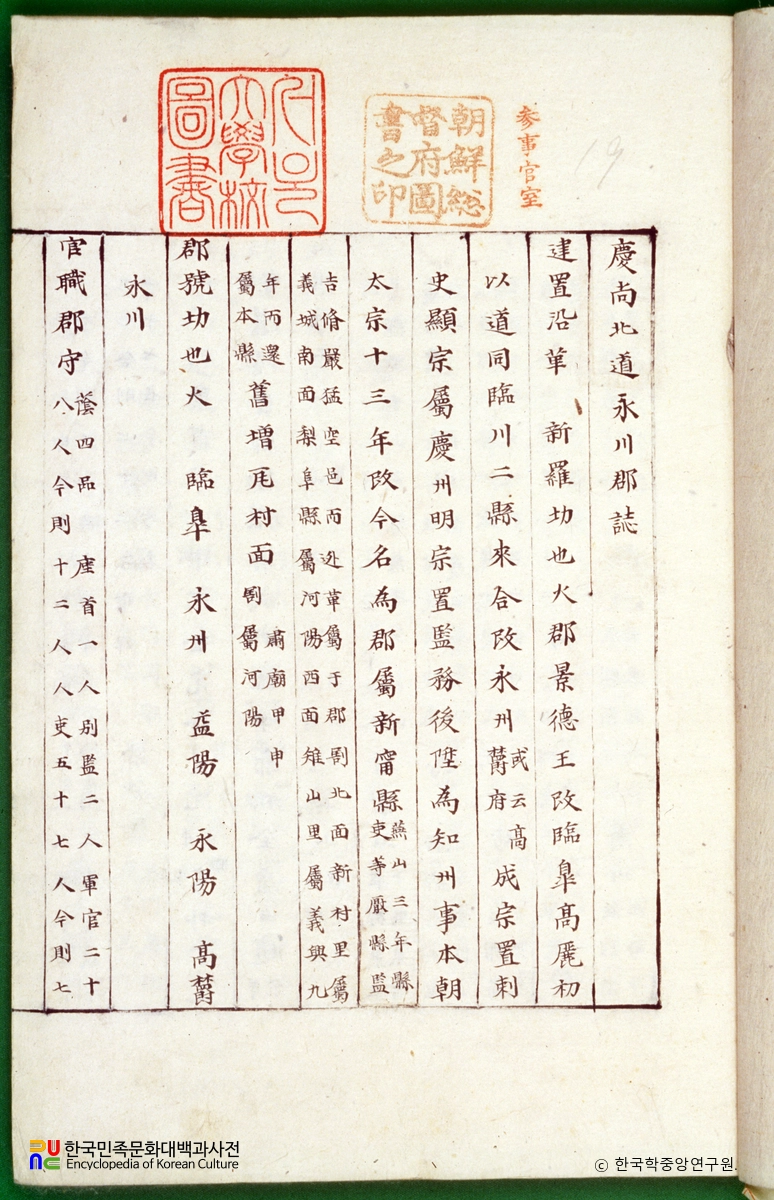 서울
大學校
圖書
朝鮮總
督府圖
書之印
参事官室
19
慶尚北道永川郡誌
建置沿革 新羅切也火郡景德王改臨皐高麗初
以道同臨川二縣來合改永州
或云高
欝府
成宗置刺
史顯宗屬慶州明宗置監務後陞為知州事本朝
太宗十三年改今名為郡屬新寗縣
燕山三年縣
吏等厭縣監
吉脩嚴猛空邑而迯革屬于郡割北面新村里屬
義城南面梨阜縣屬河陽西面雉山里屬義興九
年而還
屬本縣
舊增瓦村面
肅廟甲申
割屬河陽
郡號切也火 臨皐 永州 益陽 永陽 高欝
永川
官職郡守
蔭四品 座首一人別監二人軍官二十
八人今則十二人人吏五十七人今則七
한국민족문화대백과사전
Encyclopedia of Korean Culture
ⓒ 한국학중앙연구원.